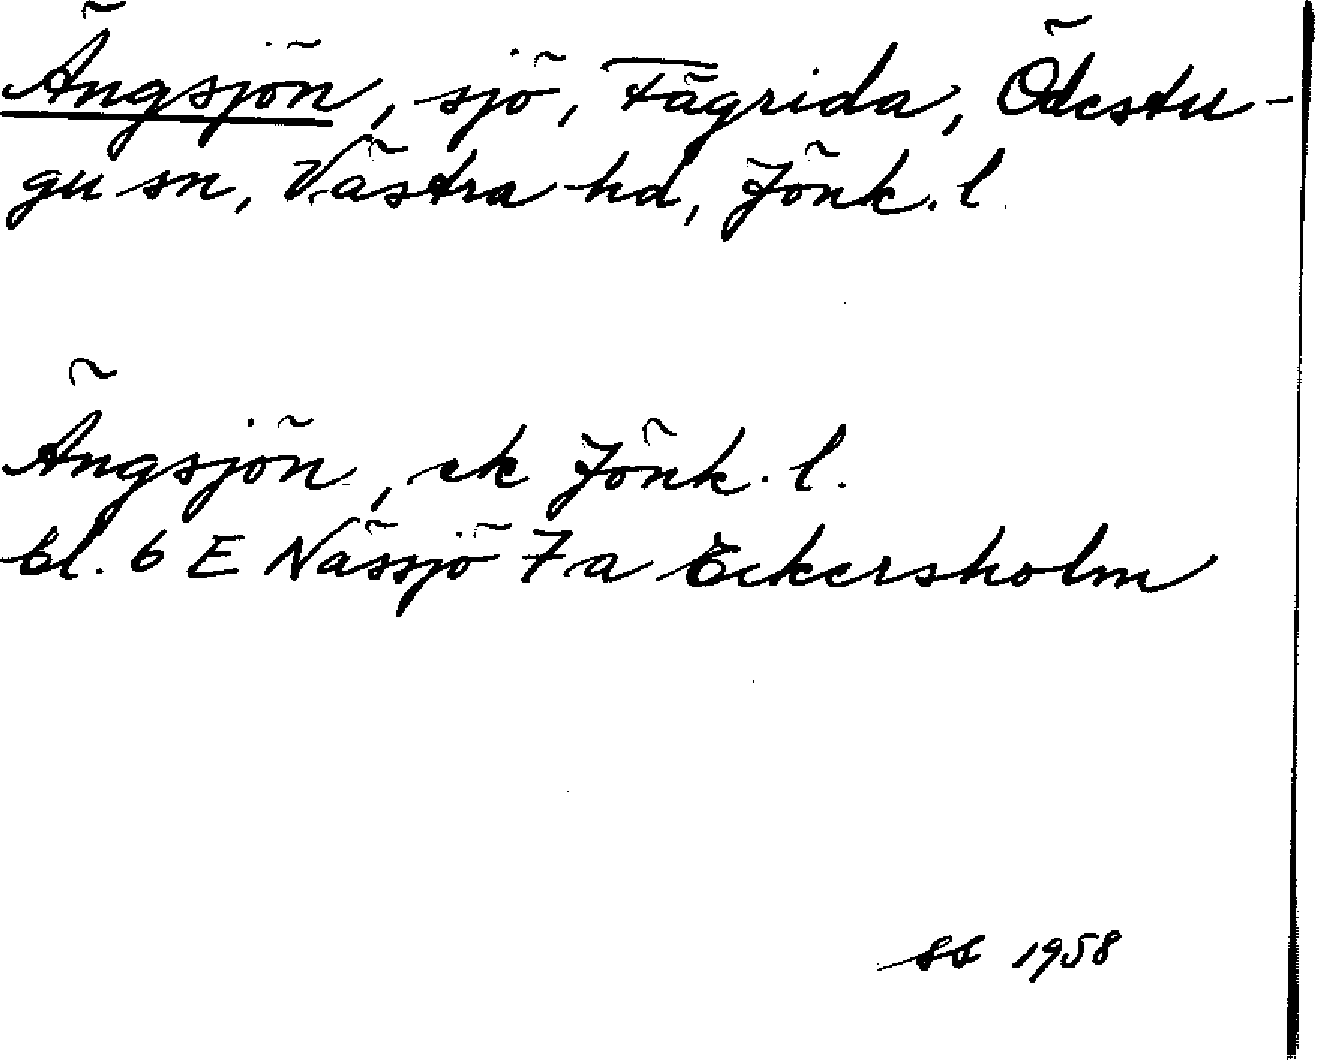 Ängsjön, sjö, Fägrida, Ödestu-
gu sn, Västra hd, Jönk. l
Ängsjön, ek Jönk. l.
bl. 6 E Nässjö 7 a Eckersholm
SS 1958